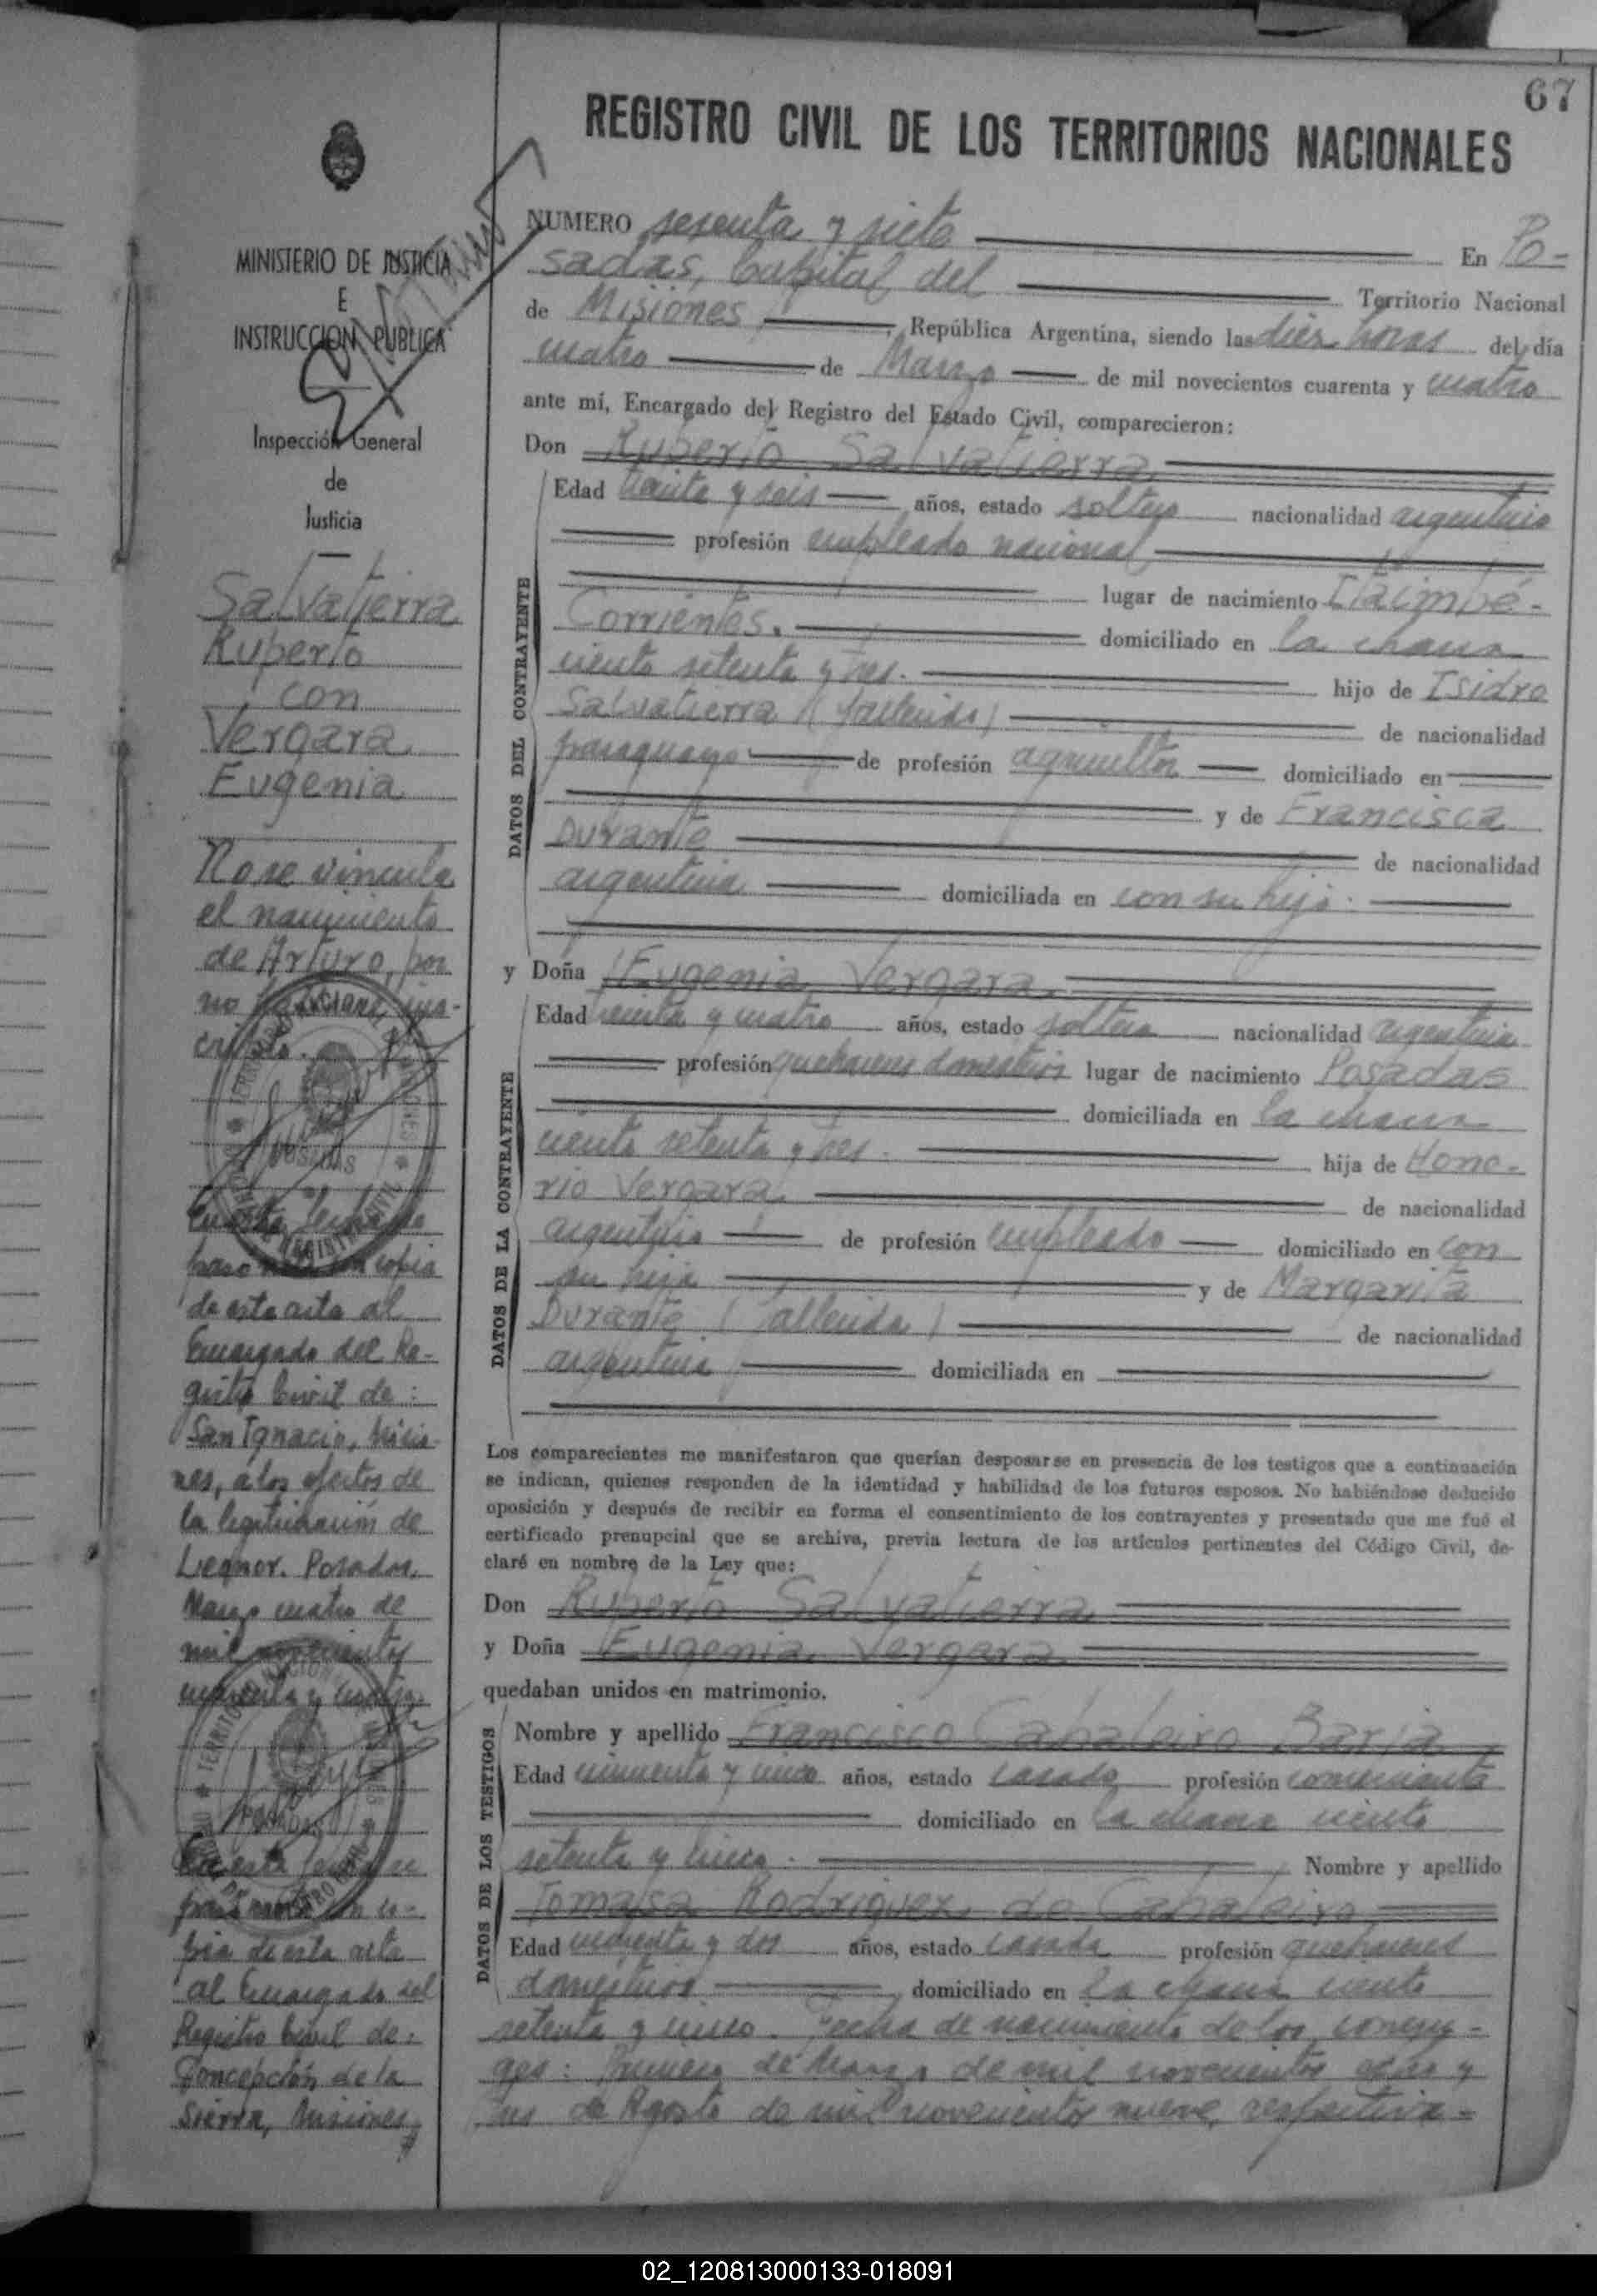 67
REGISTRO CIVIL DE LOS TERRITORIOS NACIONALES
MINISTERIO DE JUSTICIA
E
INSTRUCCION PUBLICA
Inspección General
de
Justicia
Salvatierra
Ruperto
con
Vergara
Eugenia
No se vincula
el nacimiento
de Arturo, por
no
de esta acta al
Encargado del Re-
gistro Civil de:
San Ignacio, Misio-
nes, a los efectos de
la legitimación de
Leonor. Posadas,
Marzo cuatro de
mil novecientos
cuarenta y cuatro
En esta fecha se
pia de esta acta
al Encargado del
Registro Civil de:
Concepción de la
Sierra, Misiones,
NUMERO sesenta y siete En Po-
sadas, Capital del Territorio Nacional
de Misiones, República Argentina, siendo las diez horas del día
cuatro de Marzo de mil novecientos cuarenta y cuatro
ante mí, Encargado del Registro del Estado Civil, comparecieron:
Don Ruperto Salvatierra
DATOS DEL CONTRAYENTE
Edad treinta y seis años, estado soltero nacionalidad argentino
profesión empleado nacional
lugar de nacimiento Itaimbé-
Corrientes. domiciliado en la chacra
ciento setenta y tres. hijo de Isidro
Salvatierra (fallecido) de nacionalidad
paraguayo de profesión agricultor domiciliado en
y de Francisca
Durante de nacionalidad
argentina domiciliada en con su hijo.
y Doña Eugenia Vergara
DATOS DE LA CONTRAYENTE
Edad treinta y cuatro años, estado soltera nacionalidad argentina
profesión quehaceres domésticos lugar de nacimiento Posadas
domiciliada en la chacra
ciento setenta y tres. hija de Hono-
rio Vergara de nacionalidad
argentino de profesión empleado domiciliado en con
su hija y de Margarita
Durante (fallecida) de nacionalidad
argentina domiciliada en
Los comparecientes me manifestaron que querían desposarse en presencia de los testigos que a continuación
se indican, quienes responden de la identidad y habilidad de los futuros esposos. No habiéndose deducido
oposición y después de recibir en forma el consentimiento de los contrayentes y presentado que me fué el
certificado prenupcial que se archiva, previa lectura de los artículos pertinentes del Código Civil, de-
claré en nombre de la Ley que:
Don Ruperto Salvatierra
y Doña Eugenia Vergara
quedaban unidos en matrimonio.
DATOS DE LOS TESTIGOS
Nombre y apellido Francisco Cabaleiro Baria
Edad cincuenta y cinco años, estado casado profesión comerciante
domiciliado en la chacra ciento
setenta y cinco. Nombre y apellido
Tomasa Rodriguez de Cabaleiro
Edad cincuenta y dos años, estado casada profesión quehaceres
domésticos domiciliado en la chacra ciento
setenta y cinco. Fecha de nacimiento de los cónyu-
ges: Primero de Marzo de mil novecientos ocho y
tres de Agosto de mil novecientos nueve, respectiva-
02_120813000133-018091